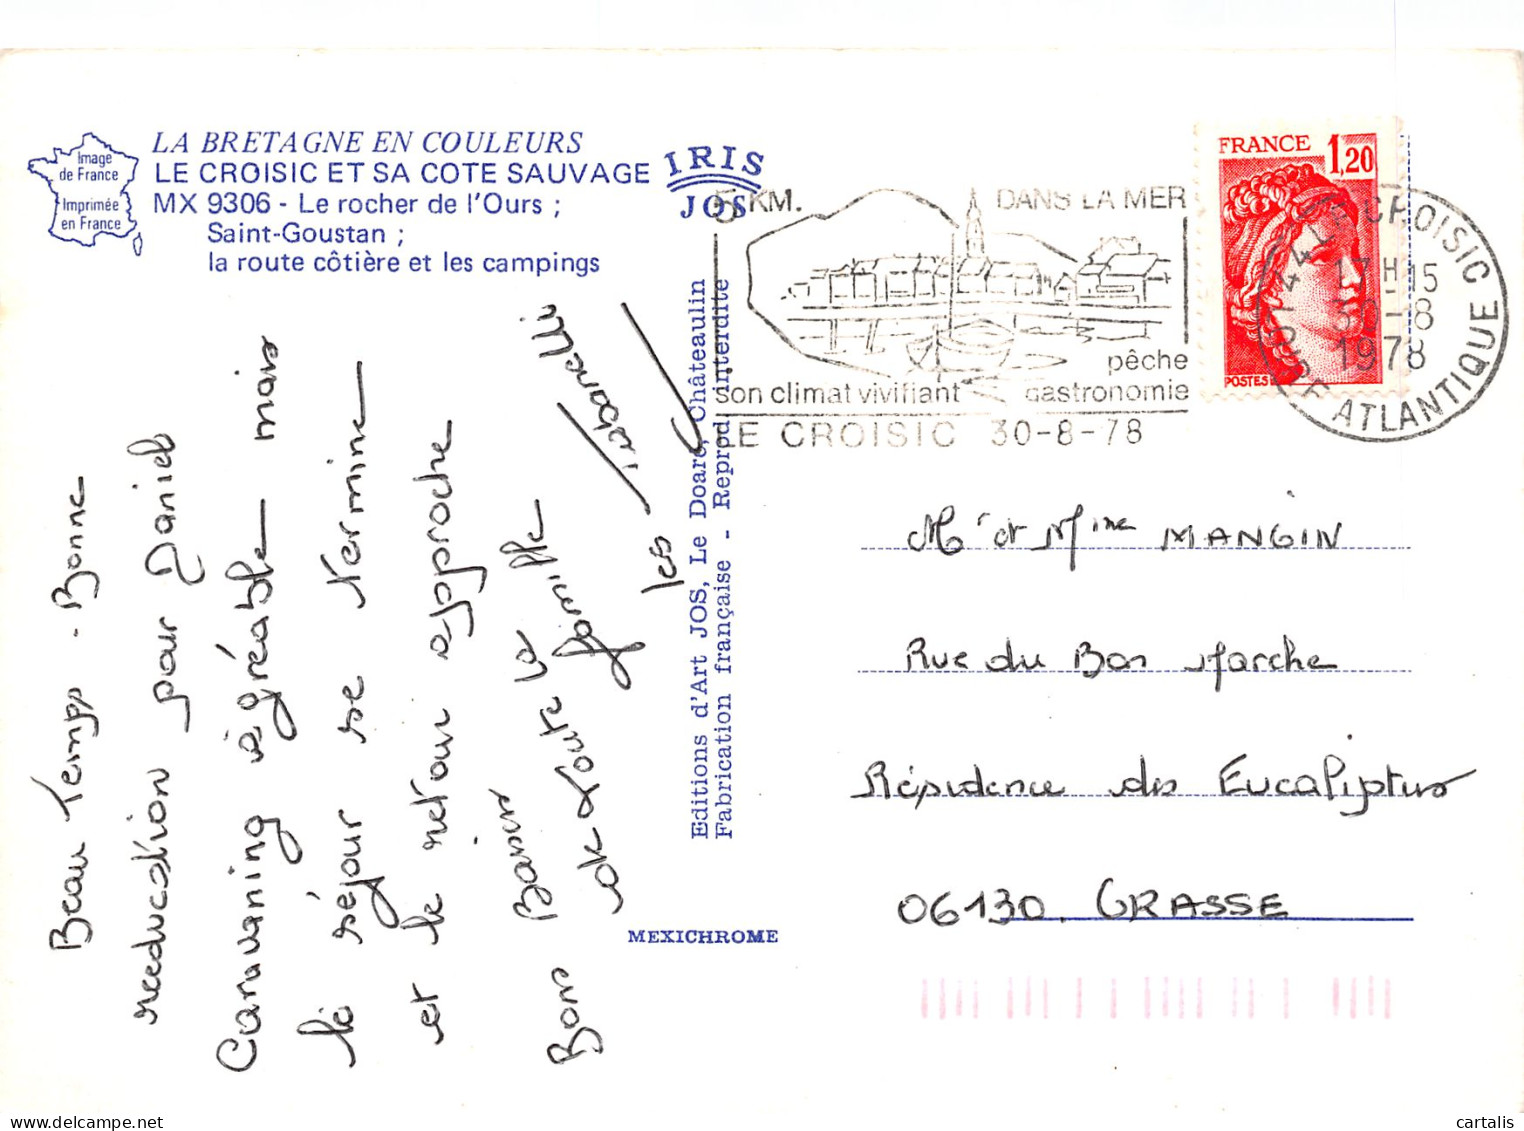 Image
de France
Imprimée
en France
LA BRETAGNE EN COULEURS
LE CROISIC ET SA COTE SAUVAGE
MX 9306 - Le rocher de l'Ours ;
Saint-Goustan ;
la route côtière et les campings
IRIS
JOS
5 KM. DANS LA MER
pêche
son climat vivifiant gastronomie
LE CROISIC 30-8-78
FRANCE 1,20
POSTES
44 LE CROISIC
17 H 15
30-8
1978
LOIRE ATLANTIQUE
Beau Temps - Bonne
reeducation pour Daniel
Caravaning agréable mais
le séjour se termine
et le retour approche
Bons Baisers
de toute la
famille
les
Editions d'Art JOS, Le Doaré, Châteaulin
Fabrication française - Reprod. interdite
MEXICHROME
Mr et Mme MANGIN
Rue du Bon Marche
Résidence des Eucaliptus
06130. GRASSE
cartalis